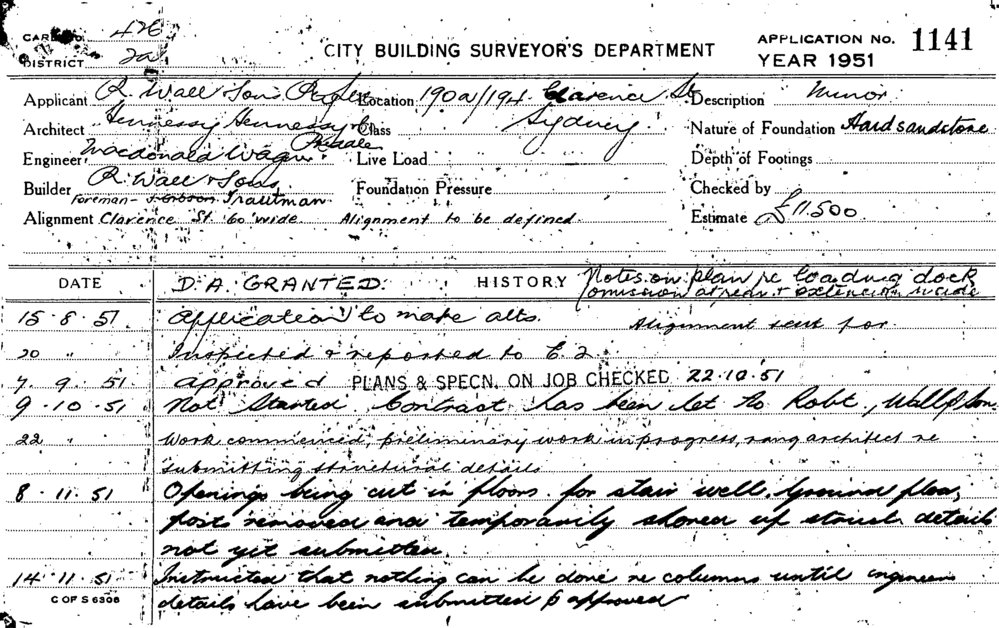 CARD No. 426
CITY BUILDING SURVEYOR'S DEPARTMENT
APPLICATION No. 1141
DISTRICT 2a
YEAR 1951
Applicant R. Wall & Sons Location 190a/194 Clarence St. Description Minor
Architect Hennessy Hennessy & Co Class Sydney Nature of Foundation Hard sandstone
Engineer Macdonald Wagner & Priddle Live Load Depth of Footings
Builder R. Wall & Sons Foundation Pressure Checked by
Foreman - J. Gibson Trautman Estimate £11.500
Alignment Clarence St. 60 wide Alignment to be defined.
DATE D.A. GRANTED. HISTORY Notes on plan re loading dock
omission at rear & extension inside
15.8.51 Application to make alts. Alignment sent for.
20 " Inspected & reported to
7.9.51 Approved PLANS & SPECN. ON JOB CHECKED 22.10.51
9.10.51 Not Started. Contract has been let to Robt. Wall & Son.
22 " Work commenced, preliminary work in progress, rang architect re
submitting structural details
8.11.51 Openings being cut in floors for stair well. Ground floor
post removed and temporarily shored up struct. details
not yet submitted.
14.11.51 Instructed that nothing can be done re columns until engineers
C OF S 6306 details have been submitted & approved